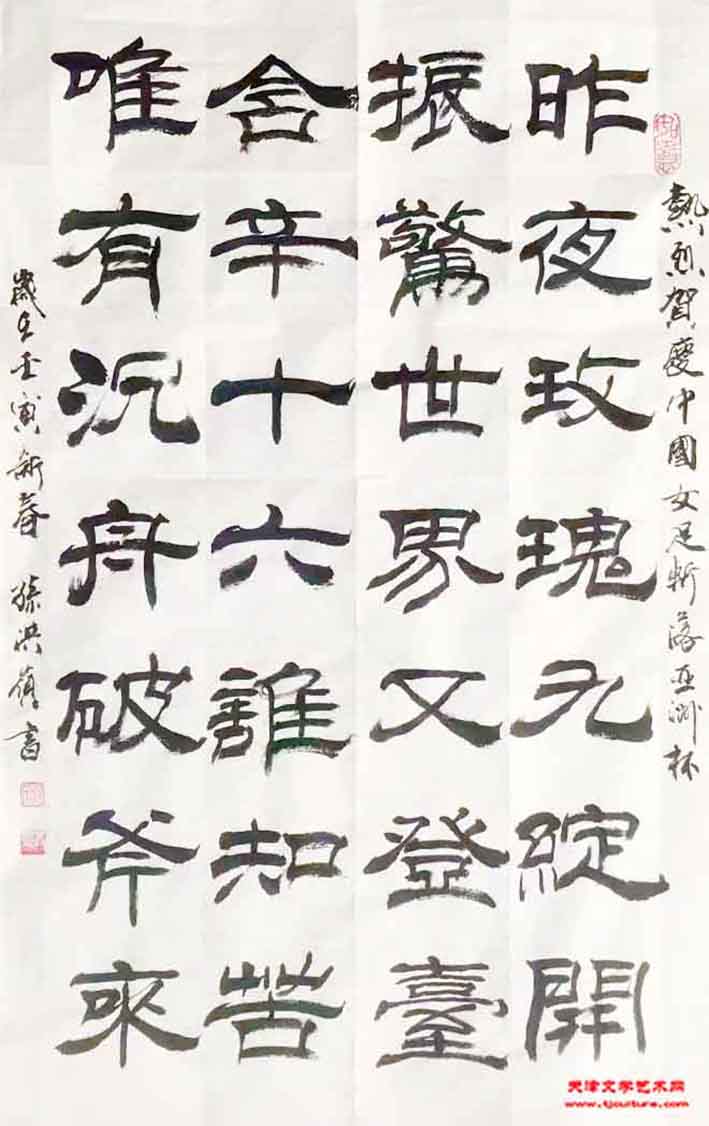 熱烈賀慶中國女足斬落亞洲杯
昨夜玫瑰九綻開
振驚世界又登臺
含辛十六誰知苦
唯有沉舟破斧來
歲在壬寅新春 孫洪書
天津文学艺术网
www.tjculture.com